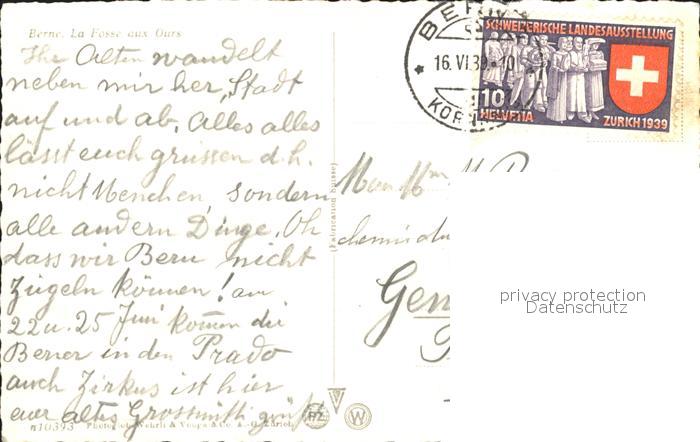 Berne. La Fosse aux Ours
Ihr Alten wandelt
neben mir her, Stadt
auf und ab. Alles alles
lässt euch grüssen d.h.
nicht Menchen, sondern
alle andern Dinge. Oh
dass wir Bern nicht
zügeln können! am
22 u. 25 Juni kommen die
Berner in den Prado
auch Zirkus ist hier
euer altes Grossmütti grüsst
n10393 Photoglob-Wehrli & Vouga & Co. A.-G. Zürich
PZ
W
(Fabrication Suisse)
BERN
16. VI. 39 - 10
SCHWEIZERISCHE LANDESAUSSTELLUNG
10
HELVETIA
ZURICH 1939
chemin du
Gen
privacy protection
Datenschutz